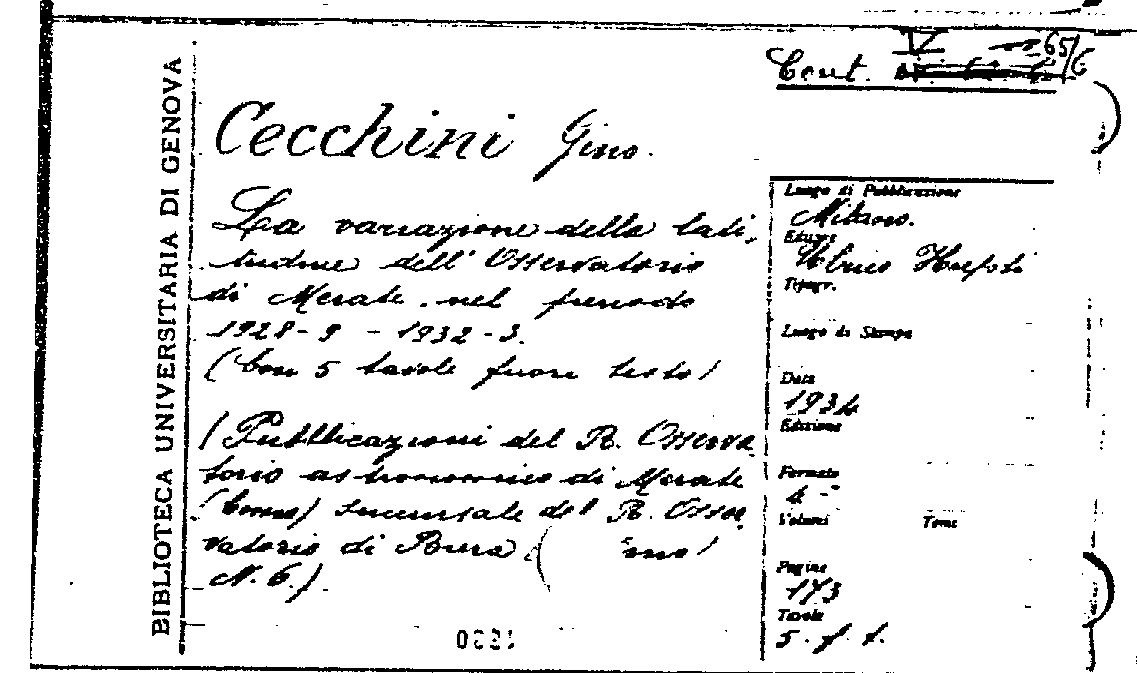 BIBLIOTECA UNIVERSITARIA DI GENOVA
Cont. V 65/6
Cecchini Gino.
La variazione della lati-
tudine dell' Osservatorio
di Merate nel periodo
1928-9 - 1932-3.
(Con 5 tavole fuori testo)
(Pubblicazioni del R. Osserva
torio astronomico di Merate
(Como) succursale del R. Osser
vatorio di Brera
N. 6.)
Luogo di Pubblicazione
Milano.
Editore
Ulrico Hoepli
Tipogr.
Luogo di Stampa
Data
1934
Edizione
Formato
4-°
Volumi Tomi
Pagine
173
Tavole
5. f. t.